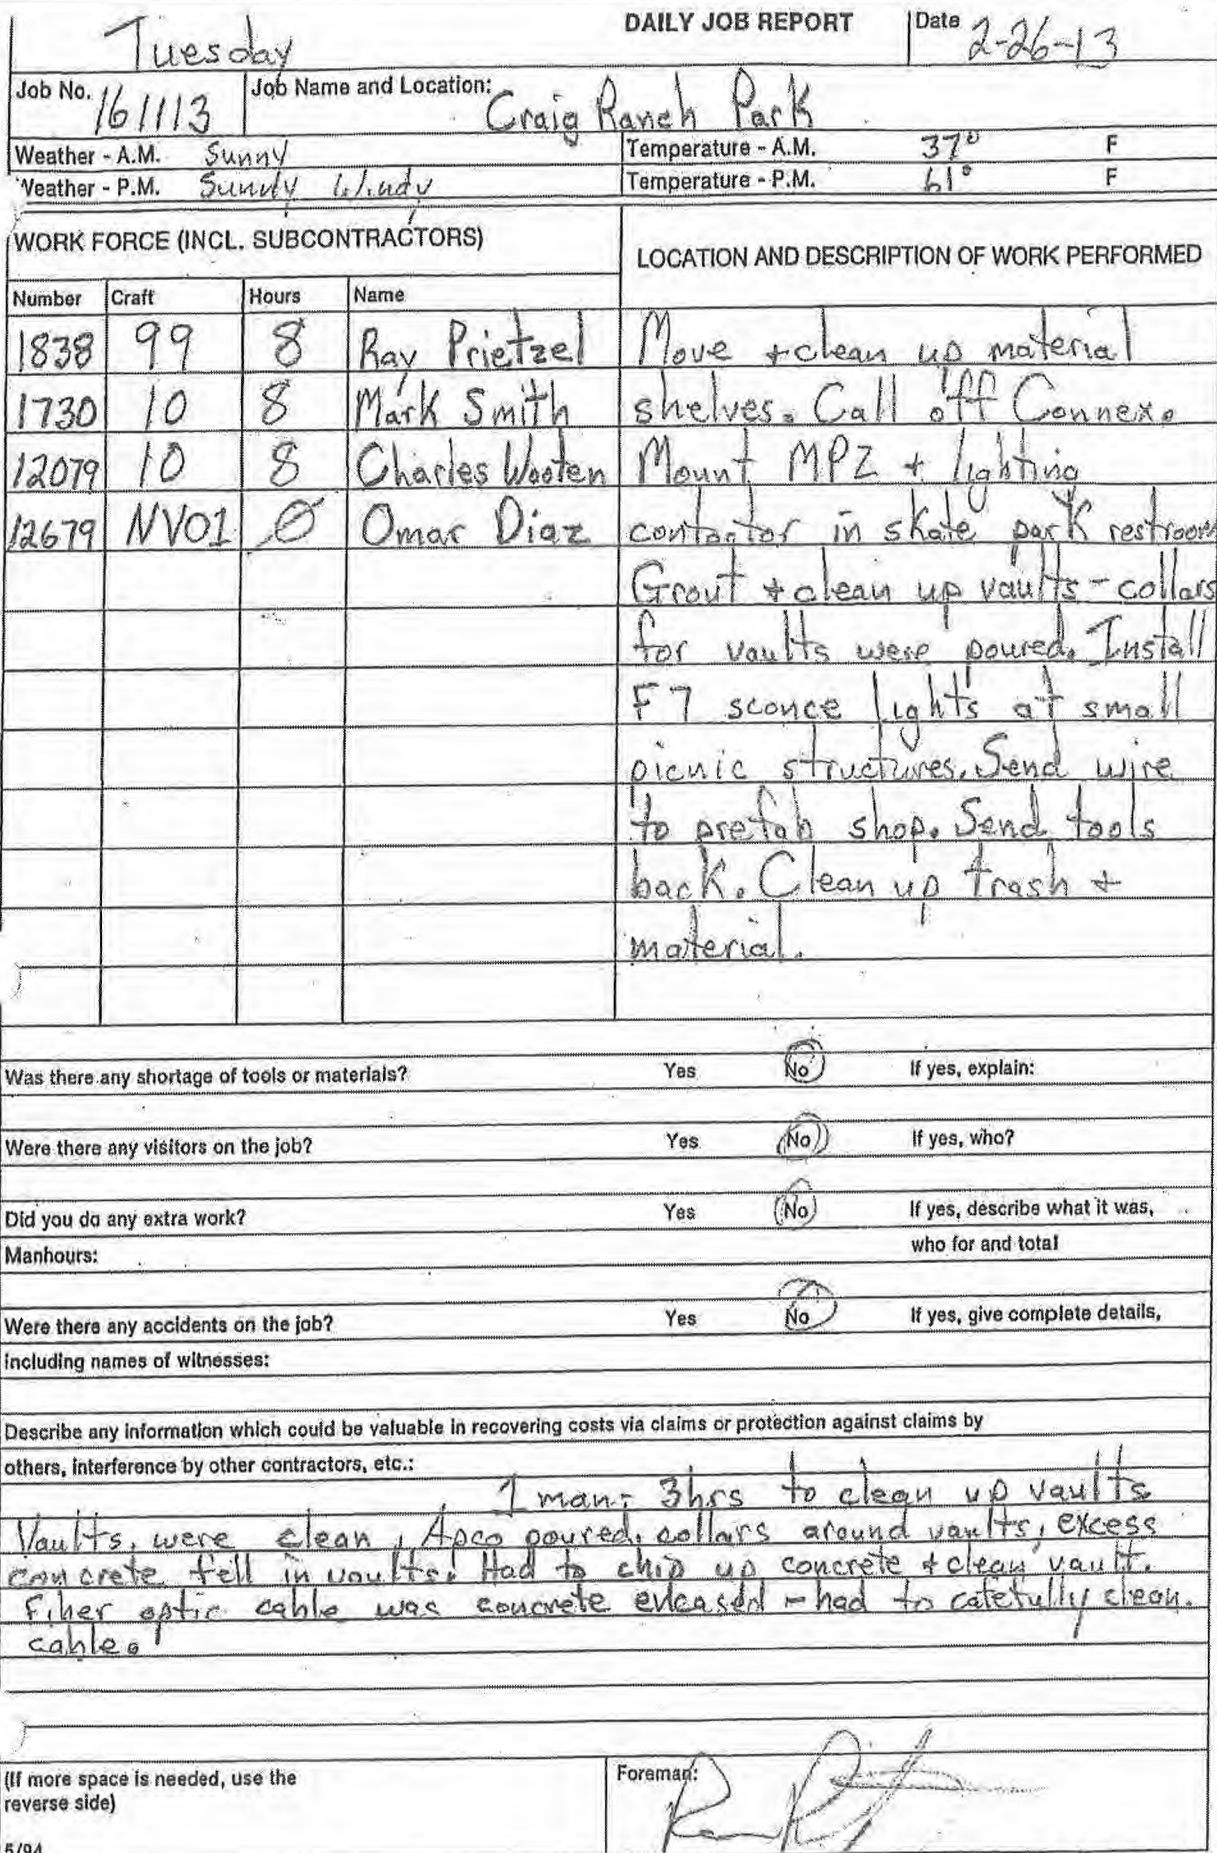 DAILY JOB REPORT
Tuesday
Date 2-26-13
Job No. 161113 Job Name and Location: Craig Ranch Park
Weather - A.M. Sunny Temperature - A.M. 37° F
Weather - P.M. Sunny Windy Temperature - P.M. 61° F
WORK FORCE (INCL. SUBCONTRACTORS)
LOCATION AND DESCRIPTION OF WORK PERFORMED
Number Craft Hours Name
1838 99 8 Ray Prietzel Move + clean up material
1730 10 8 Mark Smith shelves. Call off Connex.
12079 10 8 Charles Wooten Mount MPZ + lighting
12679 NV01 Ø Omar Diaz contactor in skate park restroom
Grout + clean up vaults - collars
for vaults were poured. Install
F7 sconce lights at small
picnic structures. Send wire
to prefab shop. Send tools
back. Clean up trash +
material.
Was there any shortage of tools or materials? Yes No If yes, explain:
Were there any visitors on the job? Yes No If yes, who?
Did you do any extra work? Yes No If yes, describe what it was,
Manhours: who for and total
Were there any accidents on the job? Yes No If yes, give complete details,
including names of witnesses:
Describe any information which could be valuable in recovering costs via claims or protection against claims by
others, interference by other contractors, etc.:
1 man - 3hrs to clean up vaults
Vaults were clean, Apco poured collars around vaults, excess
concrete fell in vaults. Had to chip up concrete + clean vault.
Fiber optic cable was concrete encased - had to carefully clean
cable.
(If more space is needed, use the
reverse side)
Foreman:
5/94